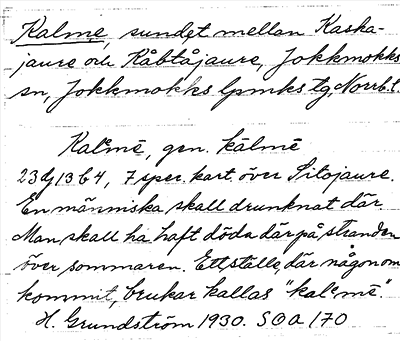 Kalme, sundet mellan Kaska-
jaure och Råbtåjaure, Jokkmokks
sn, Jokkmokks lpmks tg, Norrb. l.
Kalᵉmē, gen. kālmē
23dg13b4, 7 sper. kart. över Sitojaure.
En människa skall drunknat där.
Man skall ha haft döda där på stranden
över sommaren. Ett ställe, där någon om
kommit, brukar kallas "kalᵉmē".
H. Grundström 1930. SOA 170